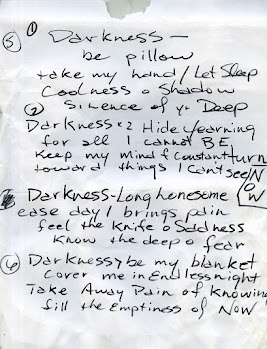 ① 
⑤ Darkness —
be pillow
take my hand / Let Sleep
Coolness o Shadow
Silence of yr Deep
② 
Darkness x2 Hide Yearning
for all I cannot BE
Keep my mind f constant turn
toward things I cant see / N
O
W
Darkness - Long lonesome
ease day / brings pain
feel the knife o Sadness
Know the deep o fear
⑥ Darkness y be my blanket
Cover me in Endless night
Take Away Pain of Knowing
fill the Emptiness of Now